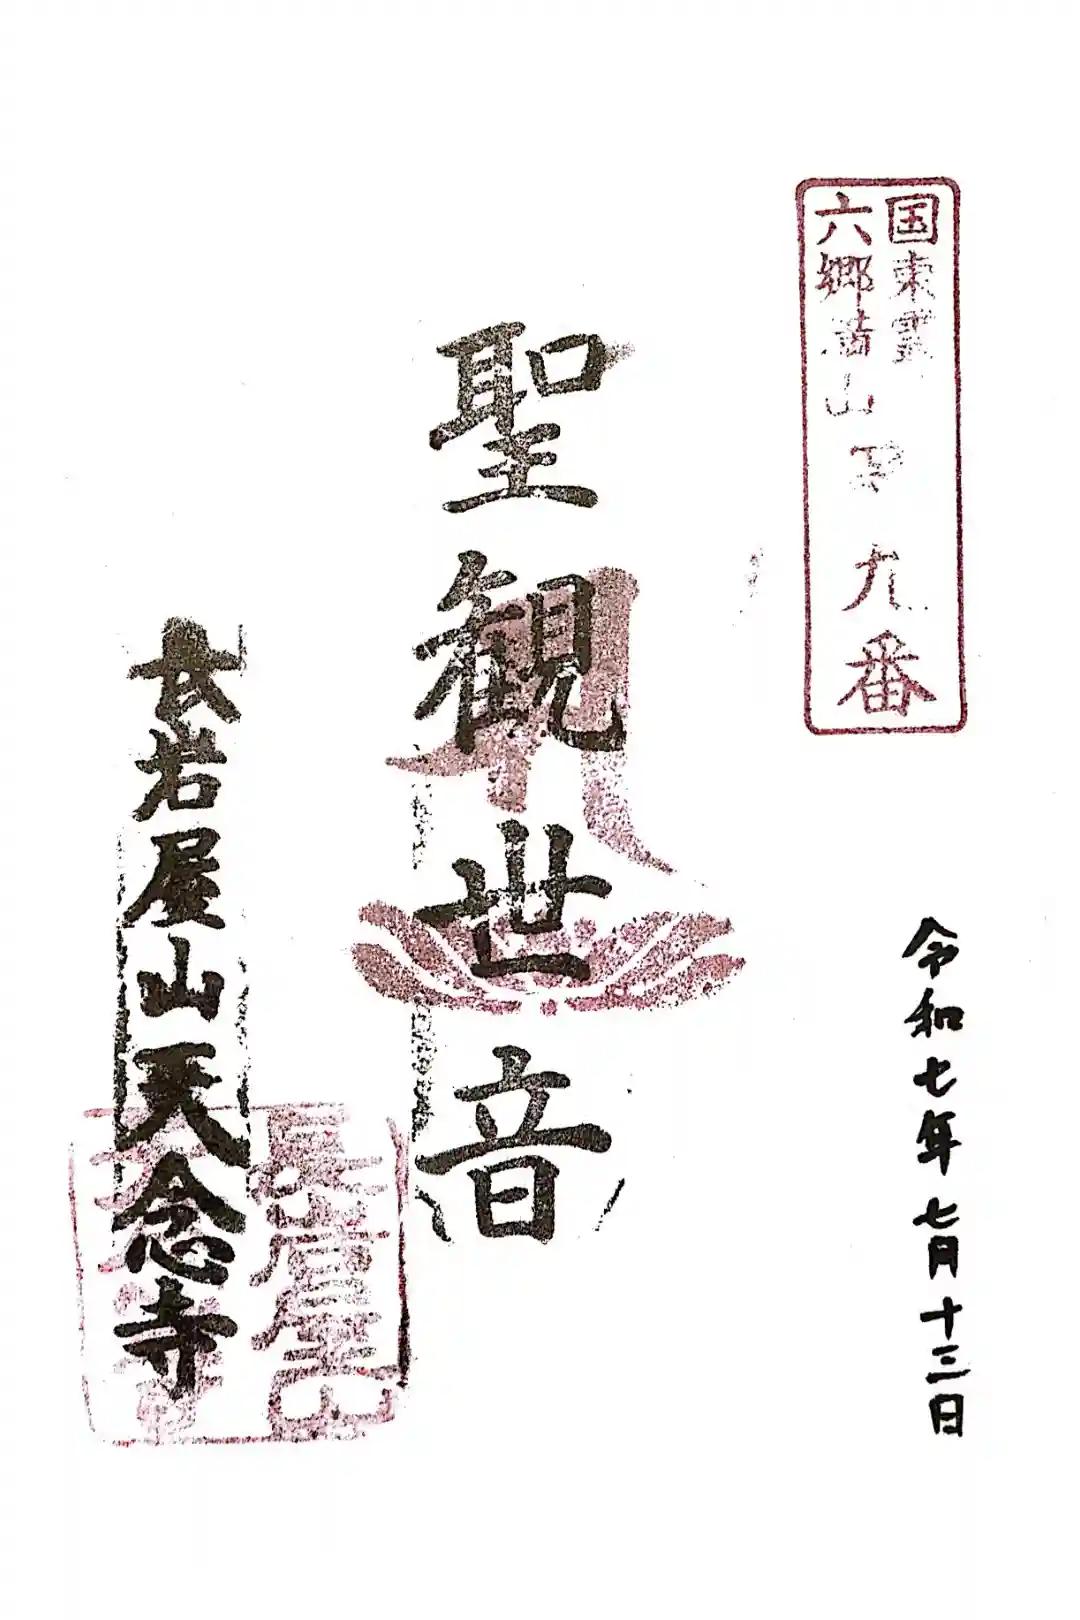 国東霊
六郷満山
第九番
聖観世音
令和七年七月十三日
長岩屋山天念寺
長岩屋山